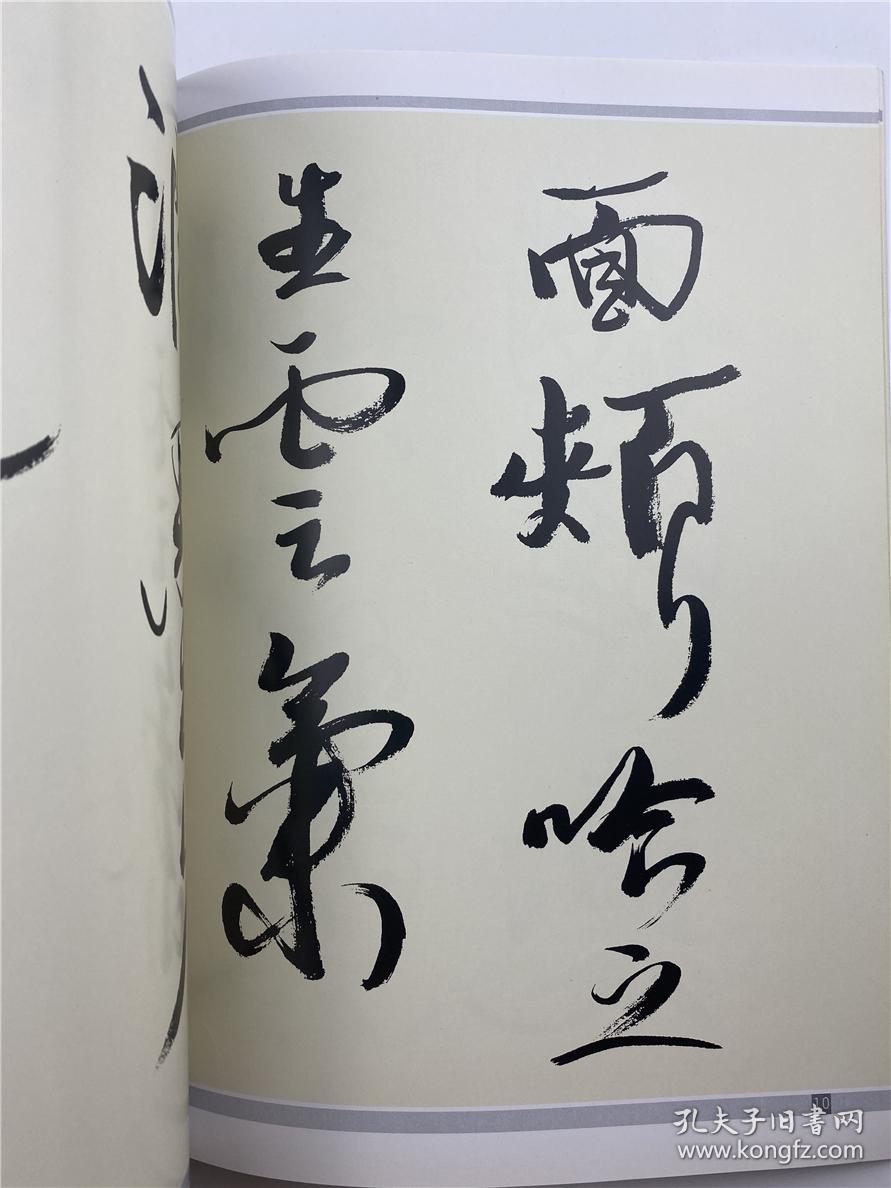 面頰吟之
生雲氣
10
孔夫子旧书网
www.kongfz.com